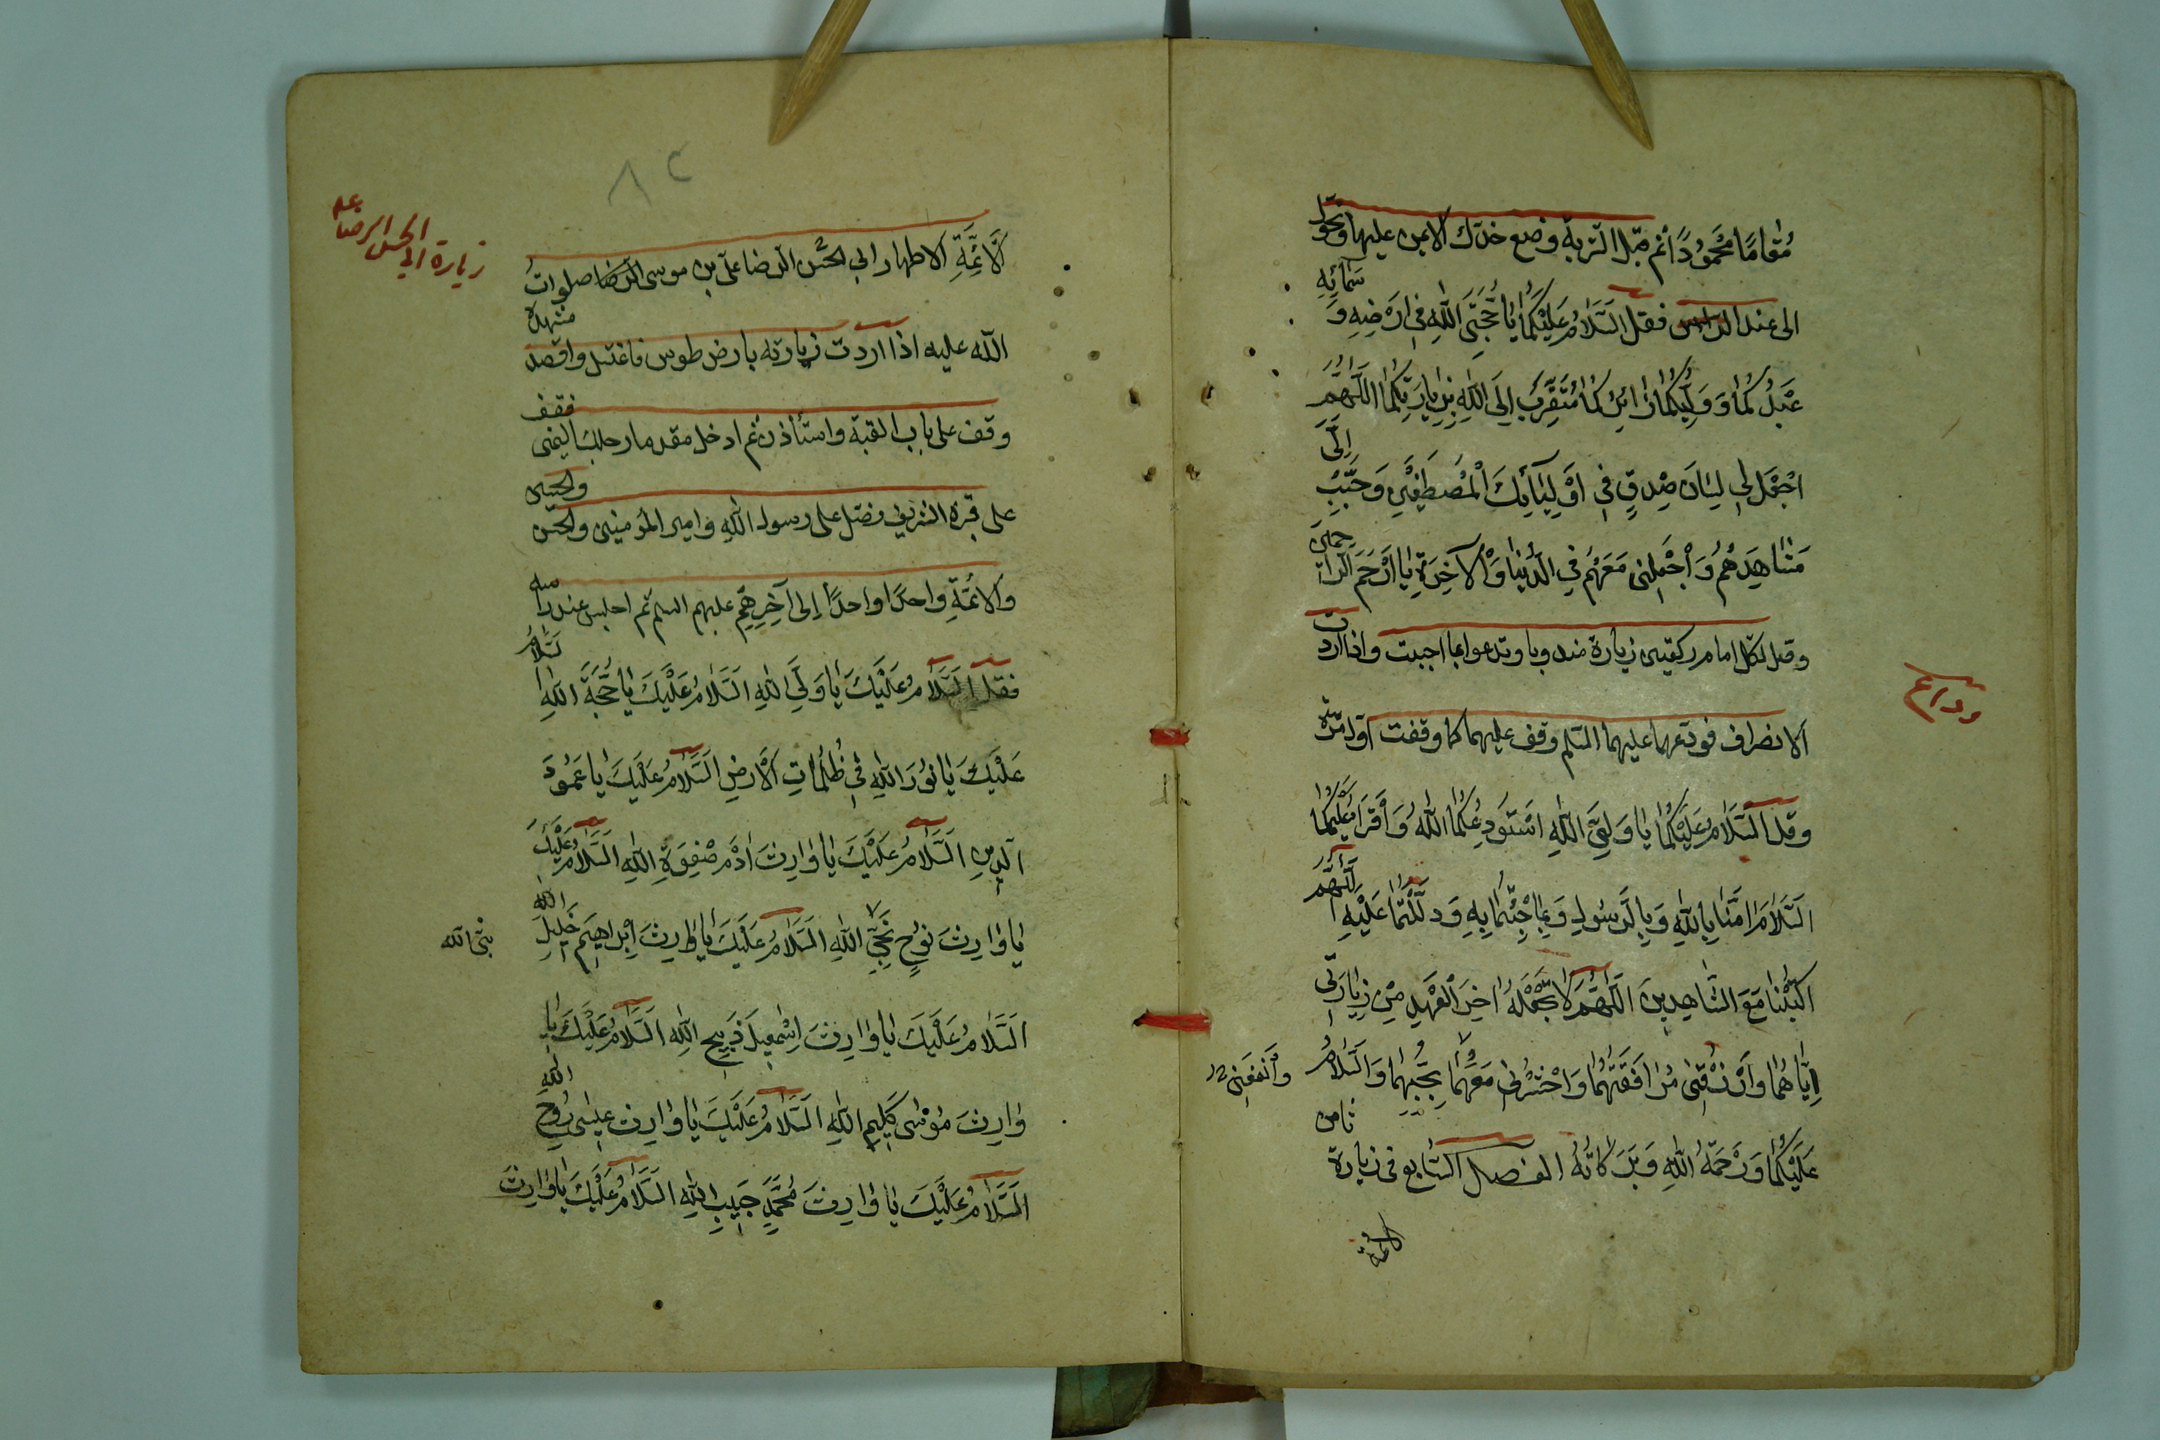 مُقامًا مَحْمُودًا ثم قبّل التربة وضع خدّك الايمن عليها وتحوّل
الى عند الراس فقل اَلسَّلامُ عَلَيْكُما يا حُجَّتَيِ اللهِ في اَرْضِهِ وَ سَمائِهِ
عَبْدُكُما وَ وَلِيُّكُما زائِرُكُما مُتَقَرِّبٌ اِلَى اللهِ بِزِيارَتِكُما اَللّهُمَّ
اجْعَلْ لي لِسانَ صِدْقٍ في اَوْلِيائِكَ الْمُصْطَفَيْنَ وَحَبِّبْ اِلَيَّ
مَشاهِدَهُمْ وَاجْعَلْني مَعَهُمْ فِي الدُّنْيا وَالْآخِرَةِ يا اَرْحَمَ الرّاحِمينَ
وصل لكل امام ركعتين زيارة مندوبا وتدعوا بما احببت واذا اردت
الانصراف فودّعهما عليهما السّلم وقف عليهما كما وقفت اوّل مرّة
وداع
وقل اَلسَّلامُ عَلَيْكُما يا وَلِيَّيِ اللهِ اَسْتَوْدِعُكُما اللهَ وَ اَقْرَأُ عَلَيْكُما
السَّلامَ امَنّا بِاللهِ وَ بِالرَّسُولِ وَ بِما جِئْتُما بِهِ وَ دَلَلْتُما عَلَيْهِ اَللّهُمَّ
اكْتُبْنا مَعَ الشّاهِدينَ اَللّهُمَّ لا تَجْعَلْهُ اخِرَ الْعَهْدِ مِنْ زِيارَتي
اِيّاهُما وَارْزُقْني مُرافَقَتَهُما وَاحْشُرْني مَعَهُما بِحُبِّهِما وَالسَّلامُ
وَانْفَعْني
عَلَيْكُما وَرَحْمَةُ اللهِ وَبَرَكاتُهُ الفصل السابع في زيارة ثامن
الائمة
٨٢
زيارة ابي الحسن الرضا ع
اَلْاَئِمَّةِ الاطهار ابي الحسن الرضا علي بن موسى الرضا صلوات
الله عليه اذا اردت زيارته بارض طوس فاغتسل واقصد مشهده
وقف على باب القبة واستأذن ثم ادخل مقدما رجلك اليمنى فقف
على قبره الشريف فصل على رسول الله وامير المؤمنين والحسن والحسين
والائمّةِ واحدًا واحدًا اِلى آخِرِهِمْ عليهم السلم ثم اجلس عند راسه
فقل اَلسَّلامُ عَلَيْكَ يا وَلِيَّ اللهِ اَلسَّلامُ عَلَيْكَ يا حُجَّةَ اللهِ اَلسَّلامُ
عَلَيْكَ يا نُورَ اللهِ في ظُلُماتِ الْاَرْضِ اَلسَّلامُ عَلَيْكَ يا عَمُودَ
الدّينِ اَلسَّلامُ عَلَيْكَ يا وارِثَ ادَمَ صَفْوَةِ اللهِ اَلسَّلامُ عَلَيْكَ
يا وارِثَ نُوحٍ نَجِيِّ اللهِ اَلسَّلامُ عَلَيْكَ يا وارِثَ اِبْراهيمَ خَليلِ اللهِ
نبيّ الله
اَلسَّلامُ عَلَيْكَ يا وارِثَ اِسْمعيلَ ذَبيحِ اللهِ اَلسَّلامُ عَلَيْكَ يا
وارِثَ مُوسى كَليمِ اللهِ اَلسَّلامُ عَلَيْكَ يا وارِثَ عيسى رُوحِ اللهِ
اَلسَّلامُ عَلَيْكَ يا وارِثَ مُحَمَّدٍ حَبيبِ اللهِ اَلسَّلامُ عَلَيْكَ يا وارِثَ